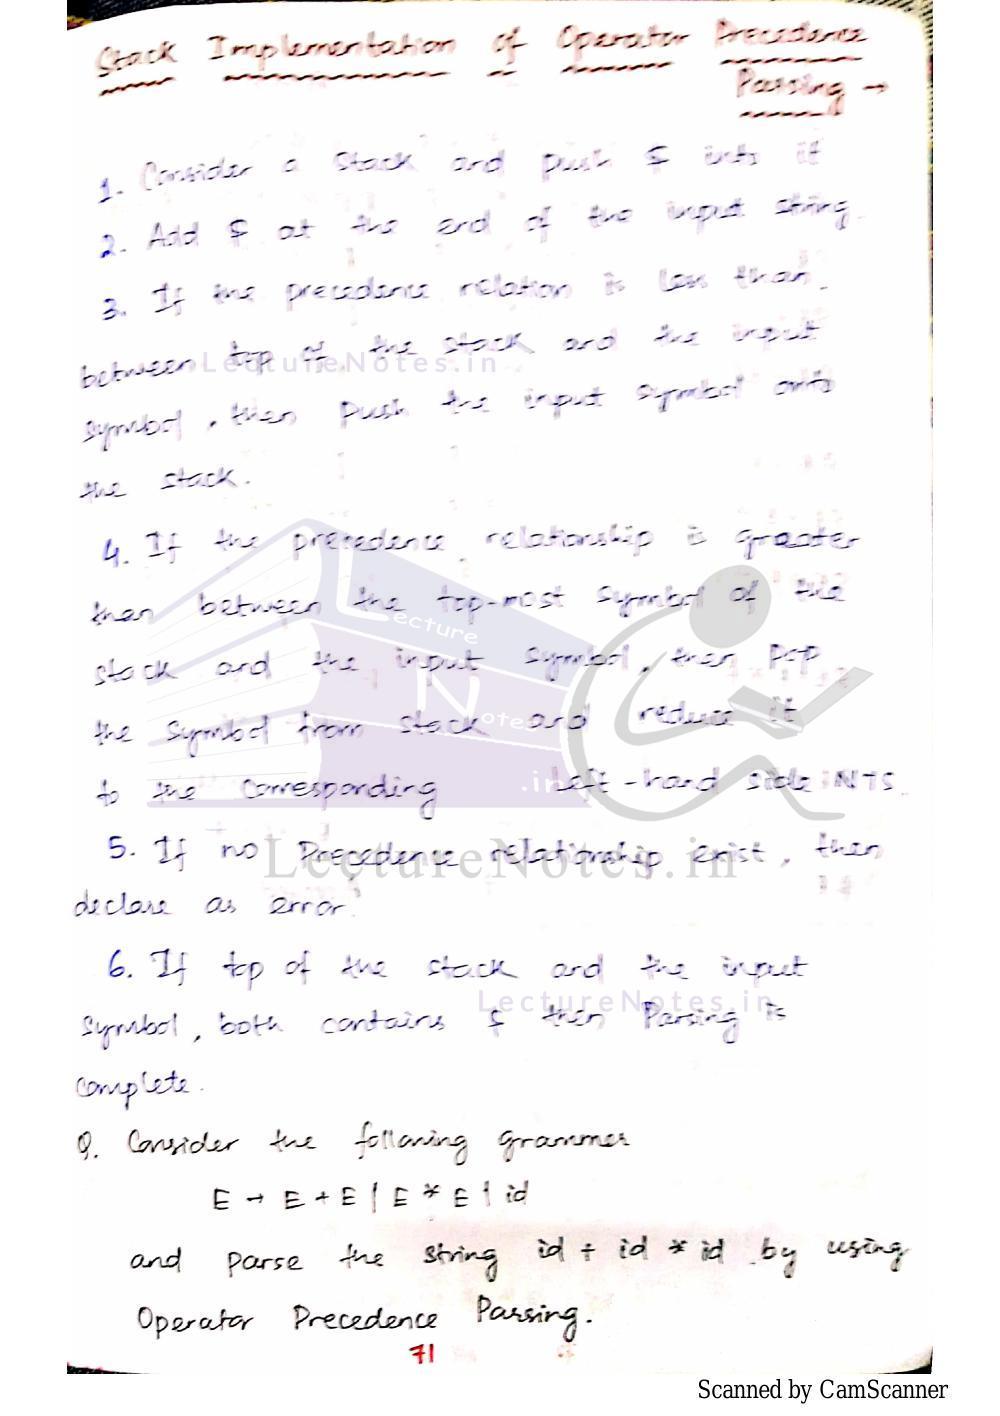 Stack Implementation of Operator Precedence
Parsing →
1. Consider a stack and push $ into it
2. Add $ at the end of the input string.
3. If the precedence relation is less than
between top of the stack and the input
LectureNotes.in
symbol, then push the input symbol onto
the stack.
4. If the precedence relationship is greater
than between the top-most symbol of the
Lecture
stack and the input symbol, then pop
Notes
the symbol from stack and reduce it
to the corresponding left-hand side NTS.
.in
5. If no Precedence relationship exist, then
LectureNotes.in
declare as error.
6. If top of the stack and the input
LectureNotes.in
symbol, both contains $ then Parsing is
complete.
Q. Consider the following grammer
E → E + E | E * E | id
and parse the string id + id * id by using
Operator Precedence Parsing.
71
Scanned by CamScanner